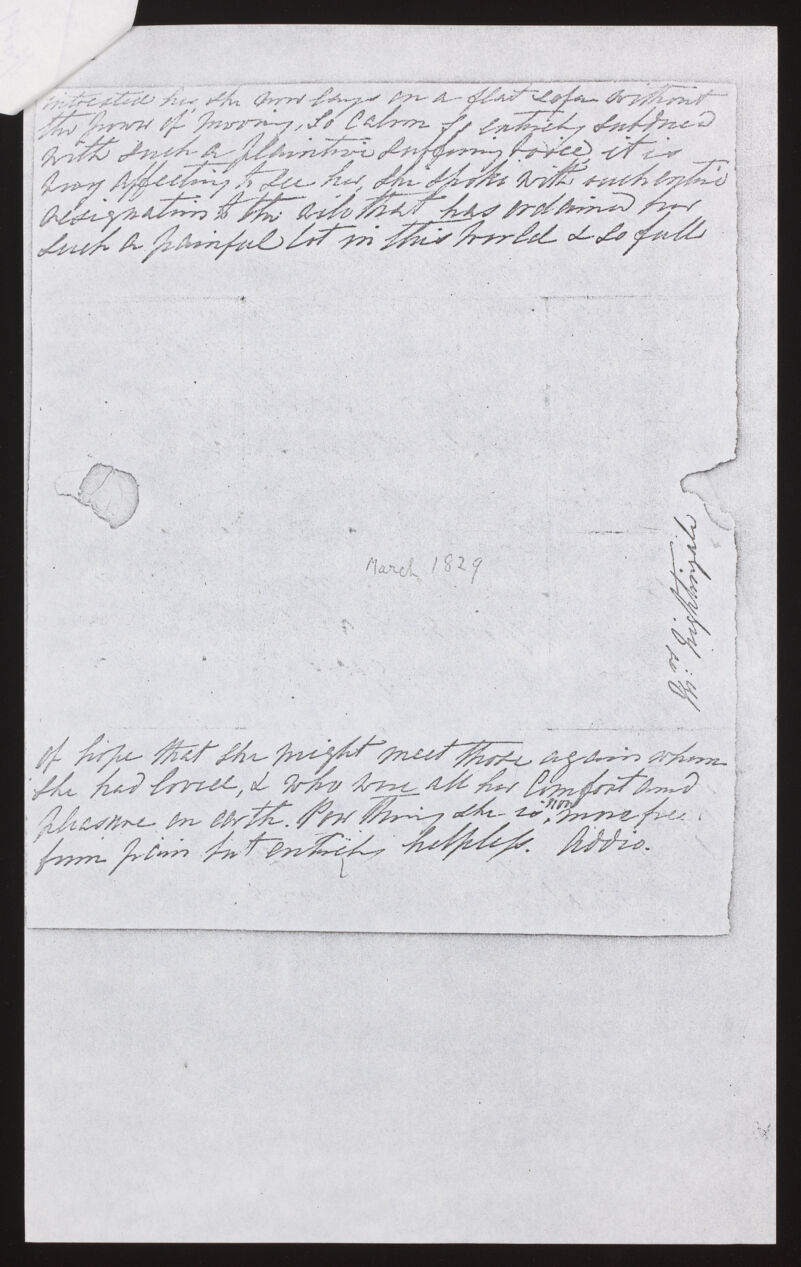 interested her, she now lays on a flat sofa without
the power of mooving, so calm & entirely subdued
with such a plaintive suffering voice, it is
very affecting to see her, she spoke with such entire
resignation to the will that has ordained her
such a painful lot in this world & so full
March 1829
Mrs Nightingale
of hope that she might meet those again whom
she had loved, & who were all her comfort and
pleasure on earth. Poor thing she is now more free
from pain but entirely helpless. Addio.